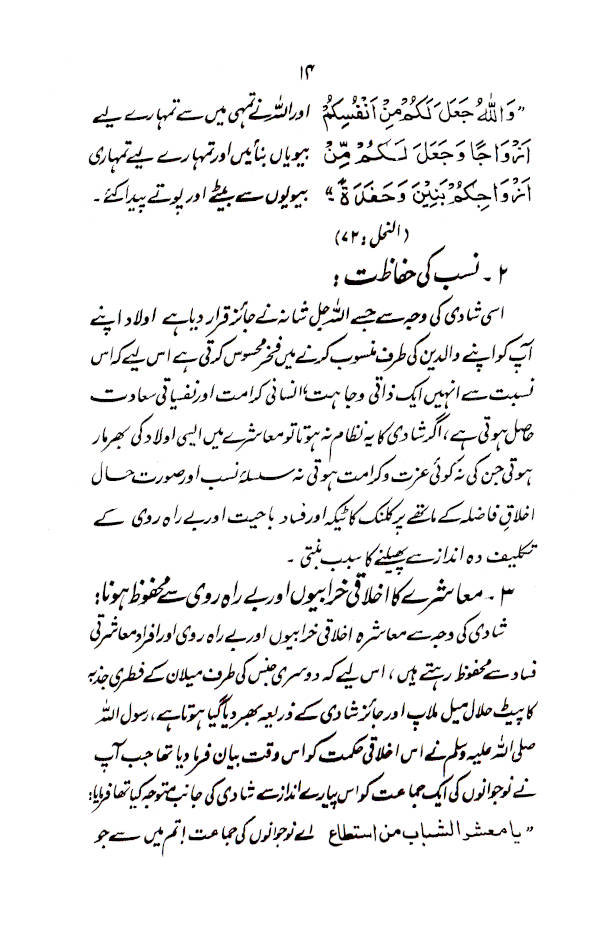 ۱۴
”وَاللّٰهُ جَعَلَ لَكُمْ مِنْ اَنْفُسِكُمْ اور اللہ نے تمہی میں سے تمہارے لیے
اَزْوَاجًا وَجَعَلَ لَكُمْ مِّنْ بیویاں بنائیں اور تمہارے لیے تمہاری
اَزْوَاجِكُمْ بَنِيْنَ وَحَفَدَةً“ بیویوں سے بیٹے اور پوتے پیدا کئے۔
(النحل: ۷۲)
۲۔ نسب کی حفاظت :
اسی شادی کی وجہ سے جسے اللہ جل شانہ نے جائز قرار دیا ہے اولاد اپنے
آپ کو اپنے والدین کی طرف منسوب کرنے میں فخر محسوس کرتی ہے اس لیے کہ اس
نسبت سے انہیں ایک ذاتی وجاہت‘ انسانی کرامت اور نفسیاتی سعادت
حاصل ہوتی ہے، اگر شادی کا یہ نظام نہ ہوتا تو معاشرے میں ایسی اولاد کی بھرمار
ہوتی جن کی نہ کوئی عزت و کرامت ہوتی نہ سلسلۂ نسب اور صورت حال
اخلاقِ فاضلہ کے ماتھے پر کلنک کا ٹیکہ اور فساد باحیت اور بے راہ روی کے
تکلیف دہ انداز سے پھیلنے کا سبب بنتی ۔
۳۔ معاشرے کا اخلاقی خرابیوں اور بے راہ روی سے محفوظ ہونا:
شادی کی وجہ سے معاشرہ اخلاقی خرابیوں اور بے راہ روی اور افراد معاشرتی
فساد سے محفوظ رہتے ہیں، اس لیے کہ دوسری جنس کی طرف میلان کے فطری جذبہ
کا پیٹ حلال میل ملاپ اور جائز شادی کے ذریعہ بھر دیا گیا ہوتا ہے، رسول اللہ
صلی اللہ علیہ وسلم نے اس اخلاقی حکمت کو اس وقت بیان فرما دیا تھا جب آپ
نے نوجوانوں کی ایک جماعت کو اس پیارے انداز سے شادی کی جانب متوجہ کیا تھا فرمایا:
”یا معشر الشباب من استطاع اے نوجوانوں کی جماعت! تم میں سے جو